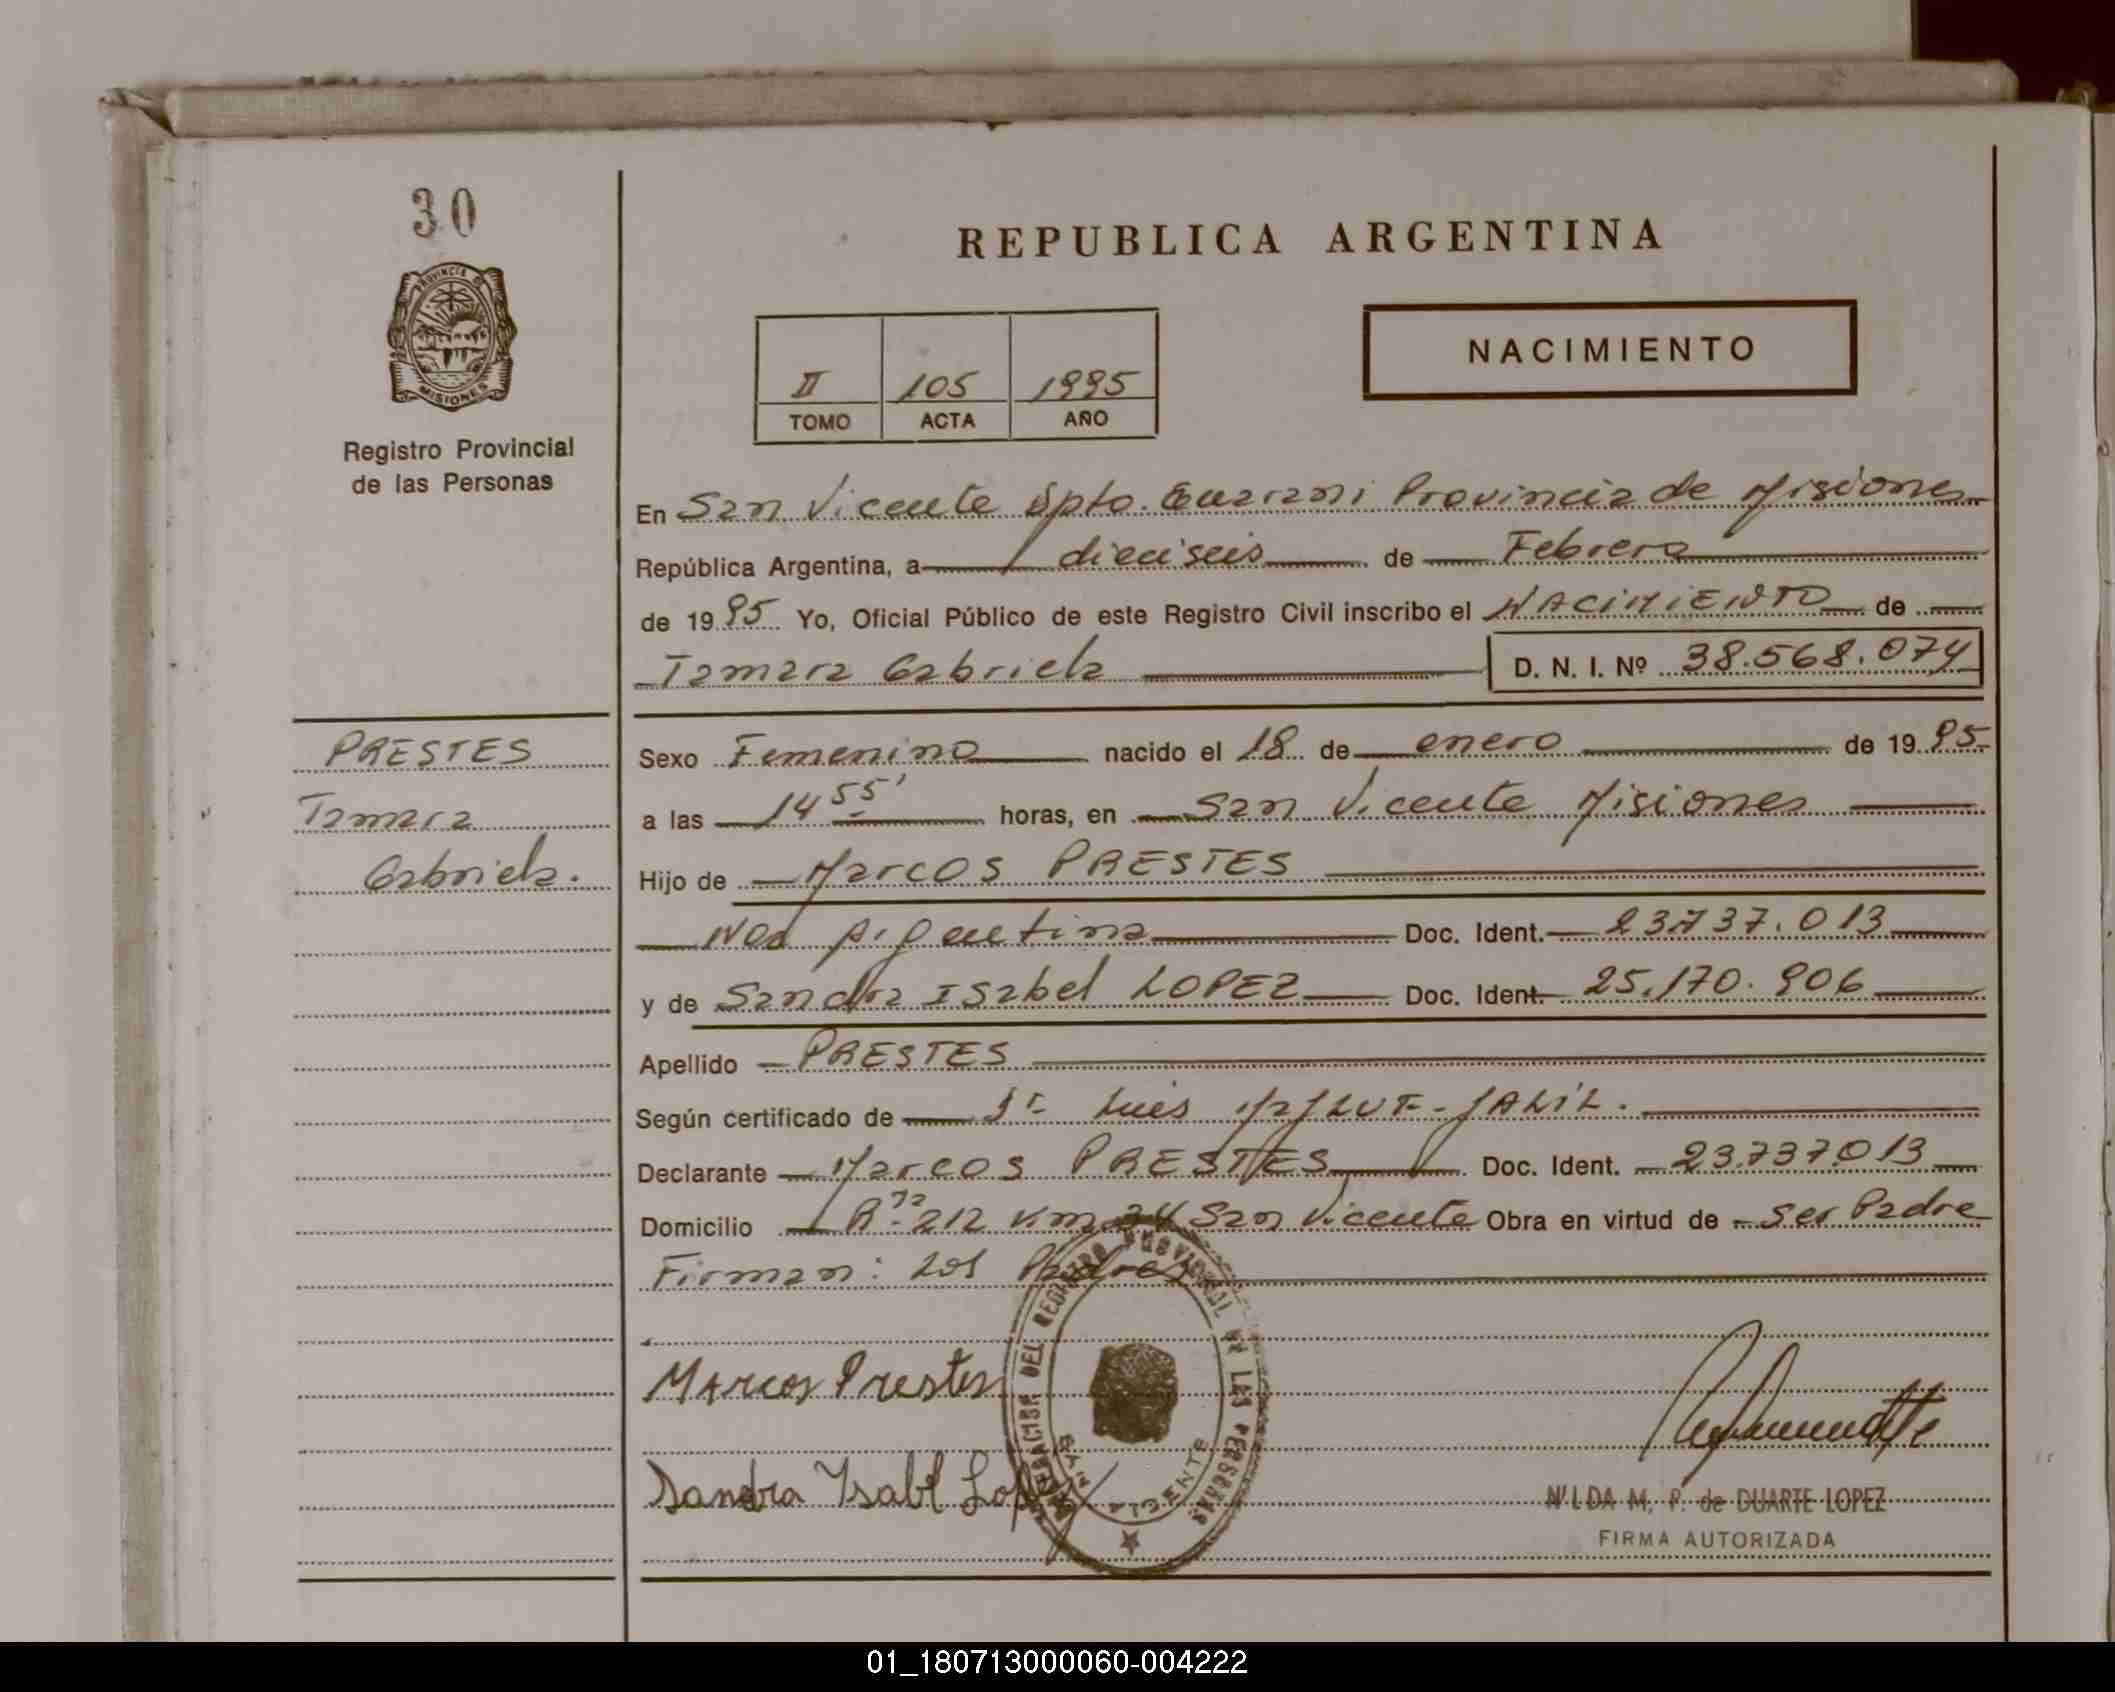 30
PROVINCIA DE
MISIONES
Registro Provincial
de las Personas
REPUBLICA ARGENTINA
II 105 1995
TOMO ACTA AÑO
NACIMIENTO
En San Vicente Dpto. Guarani Provincia de Misiones
República Argentina, a dieciseis de Febrero
de 1995 Yo, Oficial Público de este Registro Civil inscribo el NACIMIENTO de
Tamara Gabriela D. N. I. Nº 38.568.074
PRESTES
Tamara
Gabriela.
Sexo Femenino nacido el 18 de enero de 1995
a las 14 55' horas, en San Vicente Misiones
Hijo de Marcos PRESTES
Nac Argentina Doc. Ident. 23.737.013
y de Sandra Isabel LOPEZ Doc. Ident. 25.170.906
Apellido PRESTES
Según certificado de Luis JALIL.
Declarante Marcos PRESTES Doc. Ident. 23.737.013
Domicilio R. 212 Km 24 San Vicente Obra en virtud de ser Padre
Firman: Los Padres
DELEGACION DEL REGISTRO PROVINCIAL DE LAS PERSONAS
SAN VICENTE
Marcos Prestes
Sandra Ysabel Lopez
NILDA M. P. de DUARTE LOPEZ
FIRMA AUTORIZADA
01_180713000060-004222